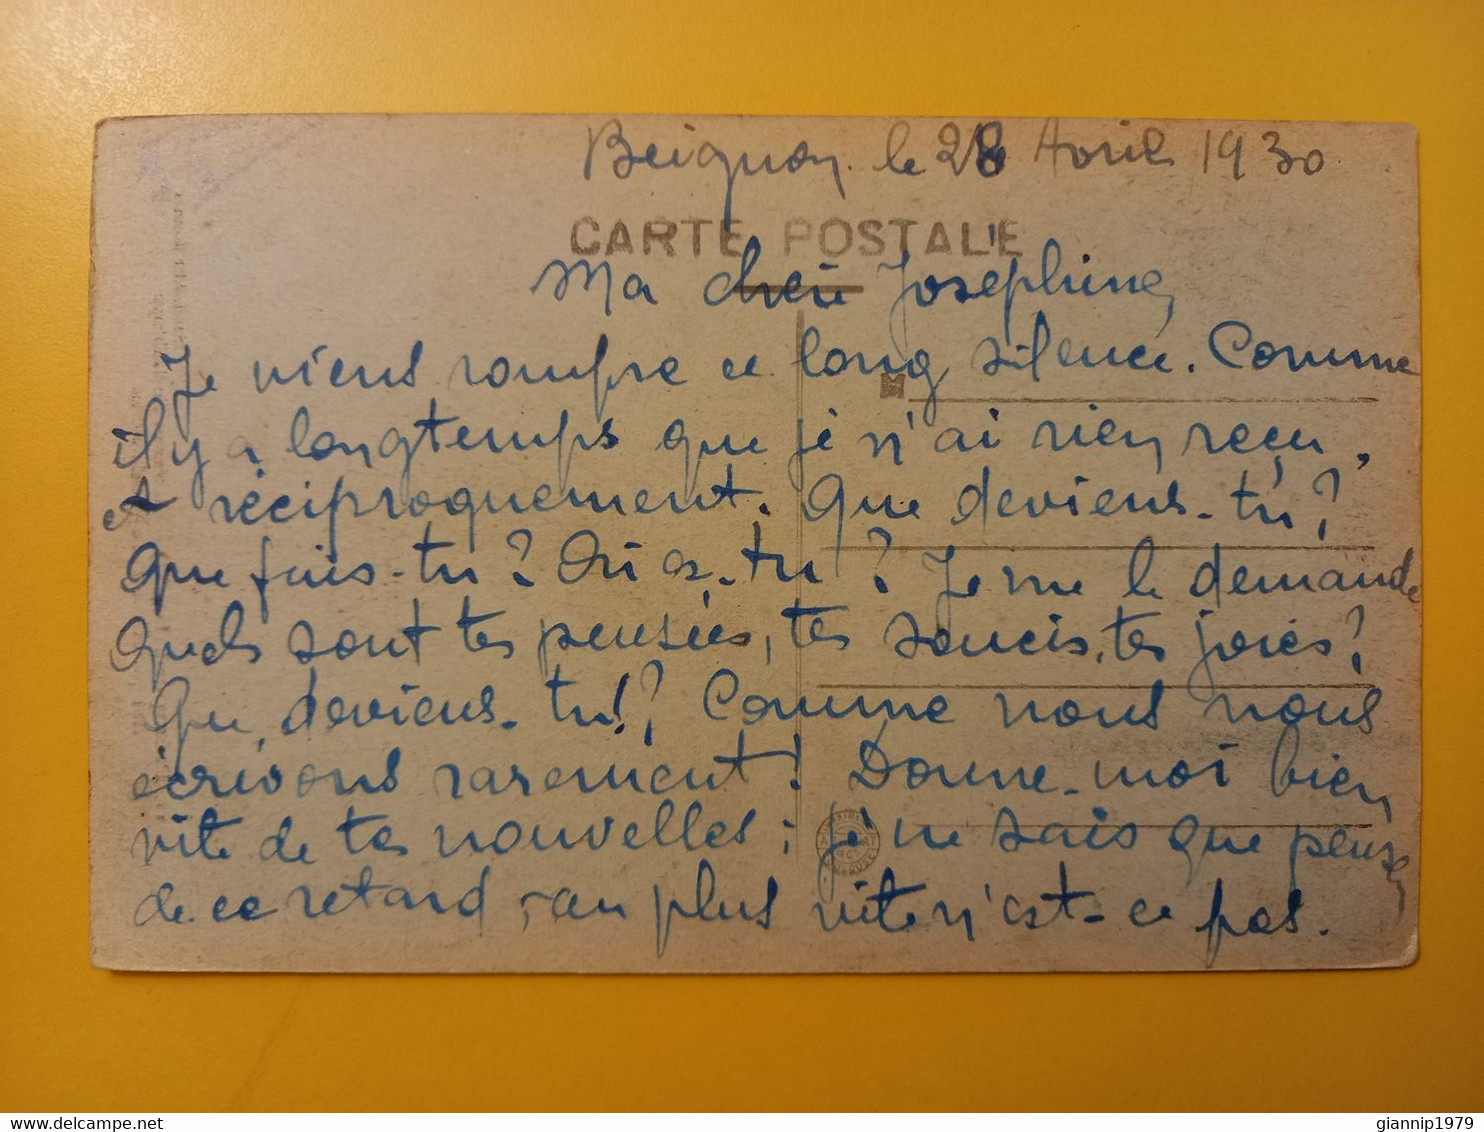 Beignon le 28 Avril 1930
CARTE POSTALE
Ma chère Joséphine,
Je viens rompre ce long silence. Comme
il y a longtemps que je n'ai rien reçu,
et réciproquement. Que deviens-tu?
Que fais-tu? Où es-tu? Je me le demande
Quels sont tes pensées, tes soucis, tes joies?
Que deviens-tu!? Comme nous nous
écrivons rarement! Donne-moi bien
vite de tes nouvelles; je ne sais que penser
de ce retard, au plus vite n'est-ce pas.
giannip1979